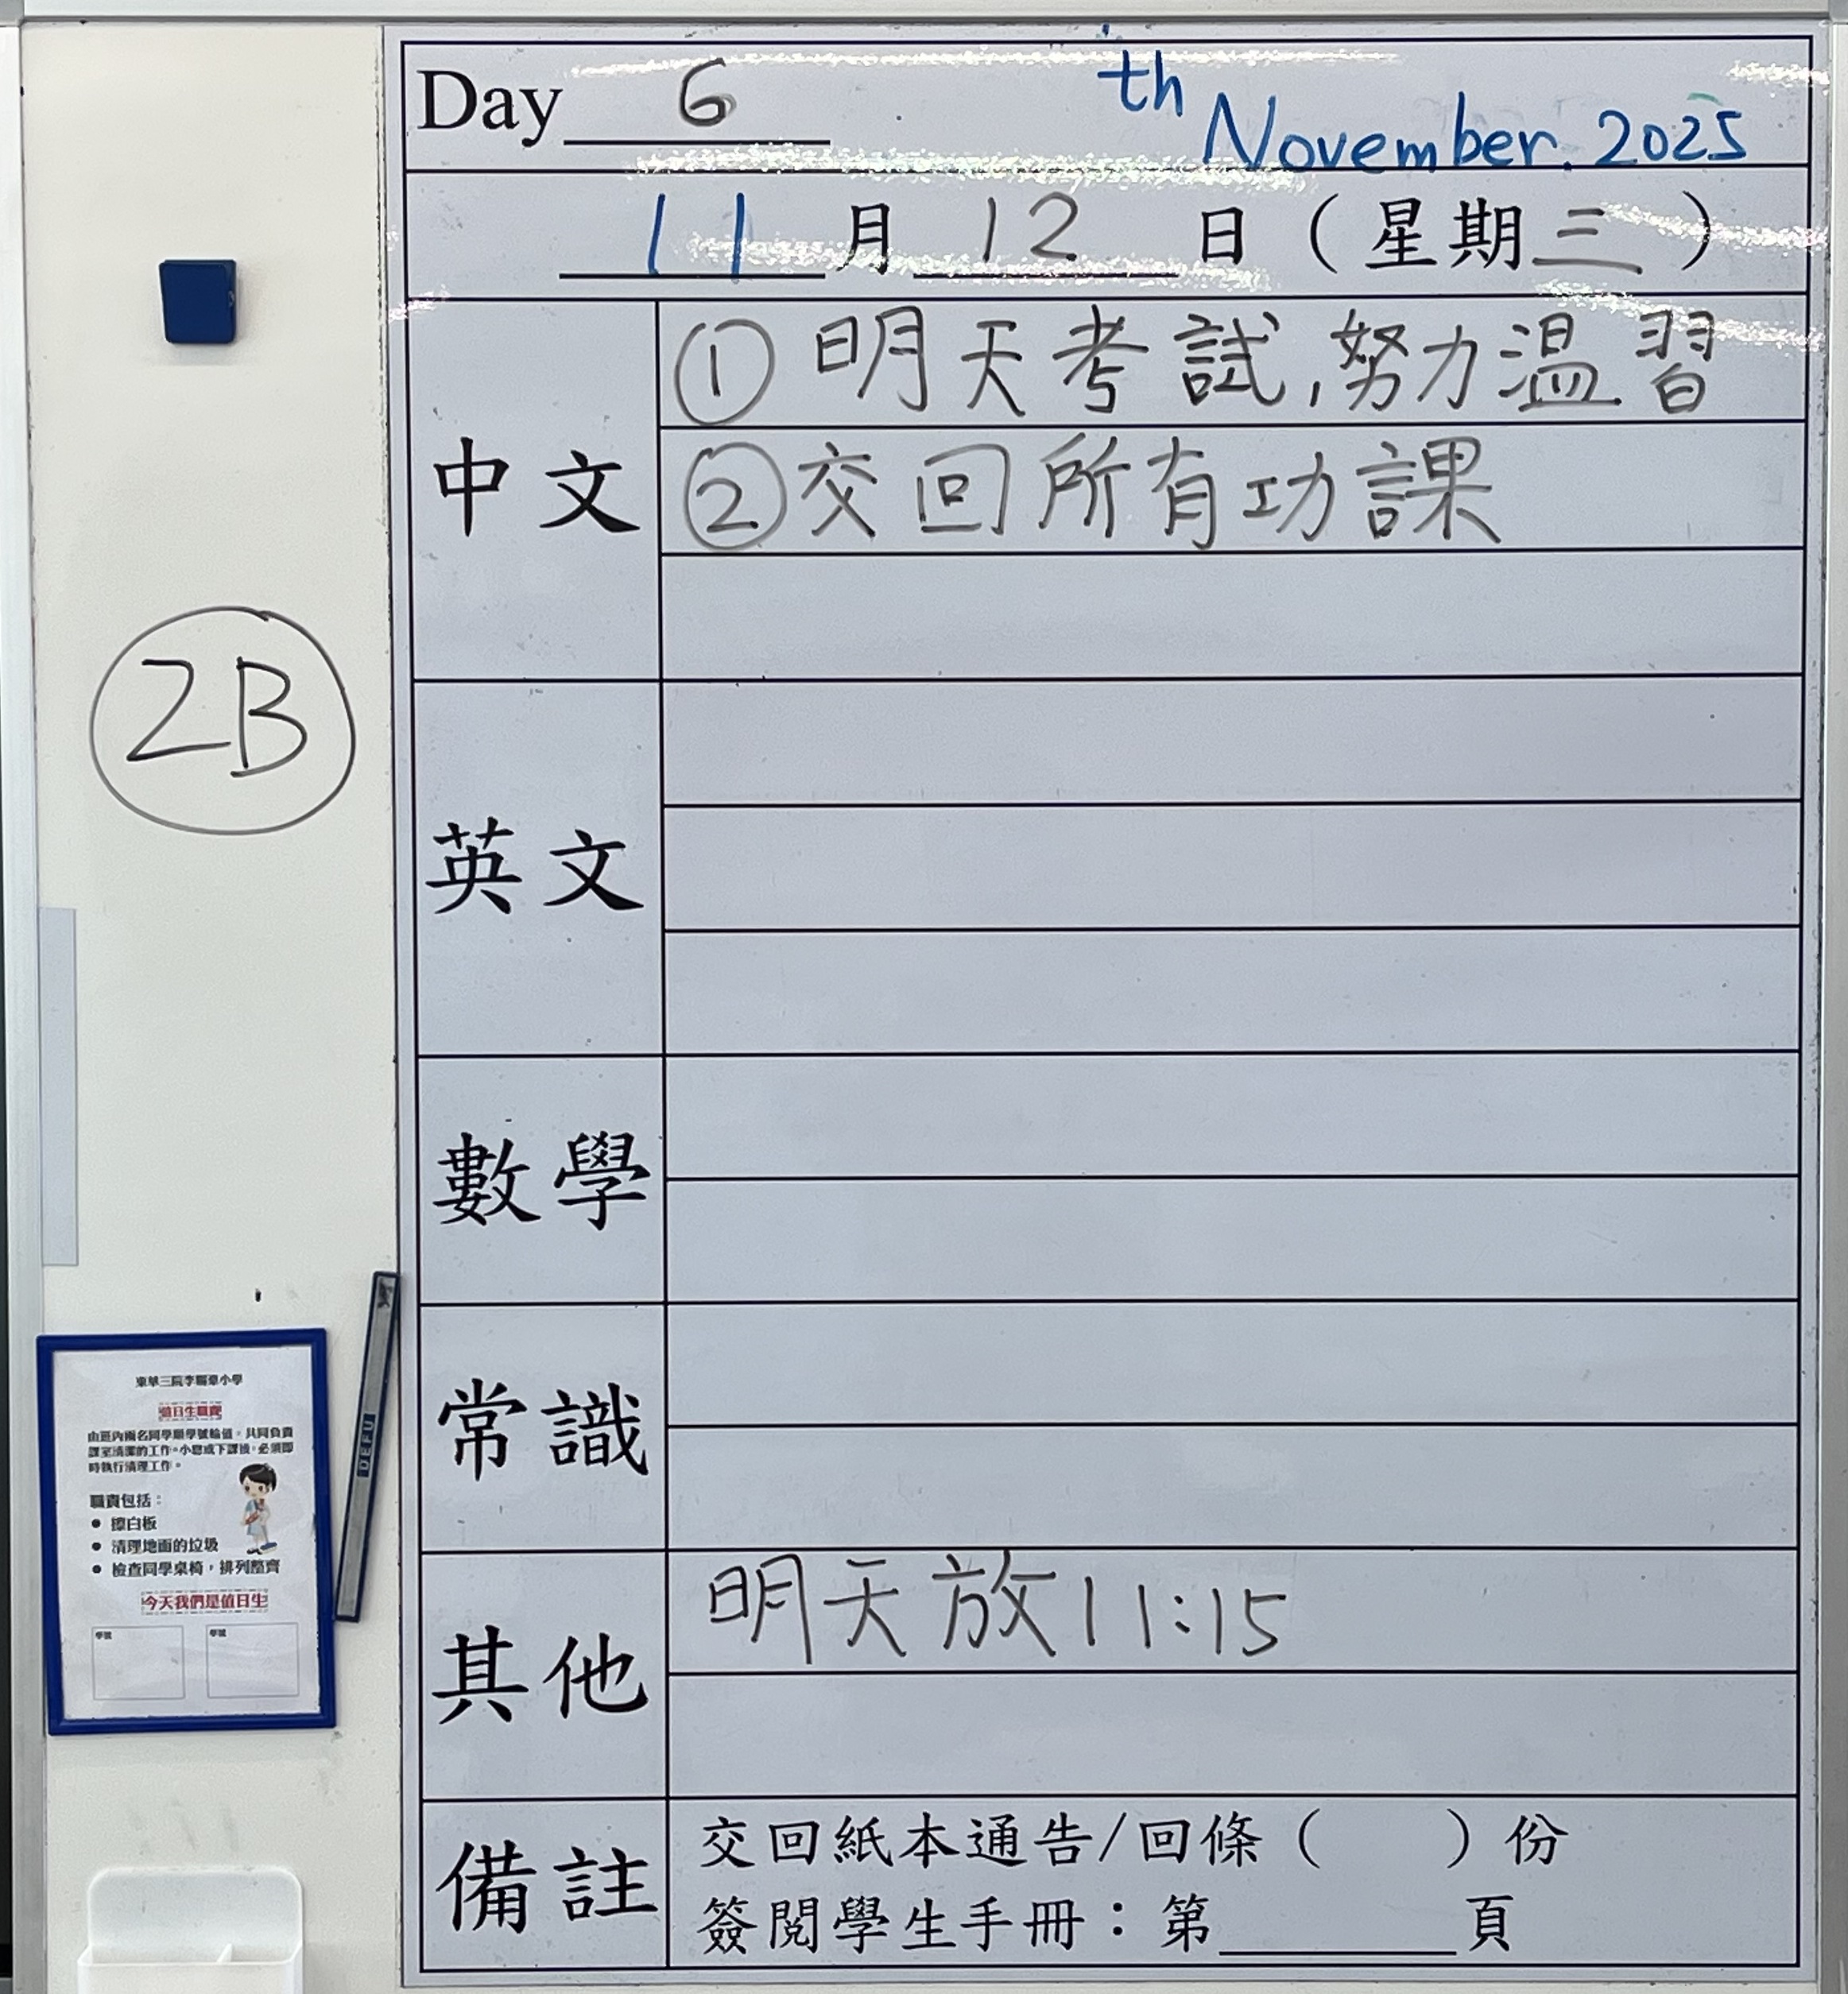 Day 6 th November. 2025
11 月 12 日 ( 星期三 )
中文
① 明天考試,努力温習
② 交回所有功課
英文
數學
常識
其他
明天放11:15
備註
交回紙本通告/回條 ( ) 份
簽閱學生手冊：第____頁
2B
DEFU
東華三院李賜豪小學
值日生職責
由班內兩名同學順學號輪值，共同負責
課室清潔的工作。小息或下課後，必須即
時執行清理工作。
職責包括：
● 擦白板
● 清理地面的垃圾
● 檢查同學桌椅，排列整齊
今天我們是值日生
學號 學號